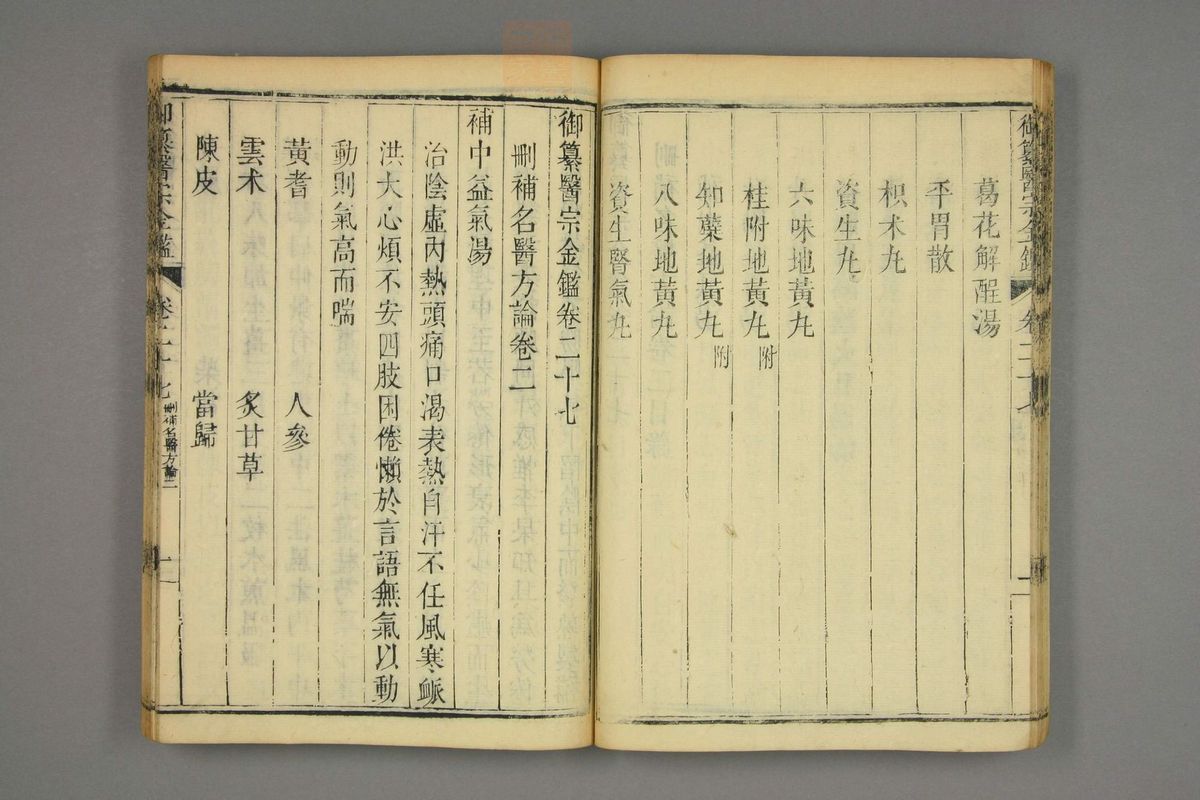 葛花解酲湯
平胃散
枳术丸
資生丸
六味地黃丸
桂附地黃丸 附
知蘗地黃丸 附
八味地黃丸
資生腎氣丸
御纂醫宗金鑑卷二十七
刪補名醫方論卷二
補中益氣湯
治陰虛內熱頭痛口渴表熱自汗不任風寒脈
洪大心煩不安四肢困倦懶於言語無氣以動
動則氣高而喘
黃耆 人參
雲术 炙甘草
陳皮 當歸
御纂醫宗金鑑 卷二十七 刪補名醫方論二